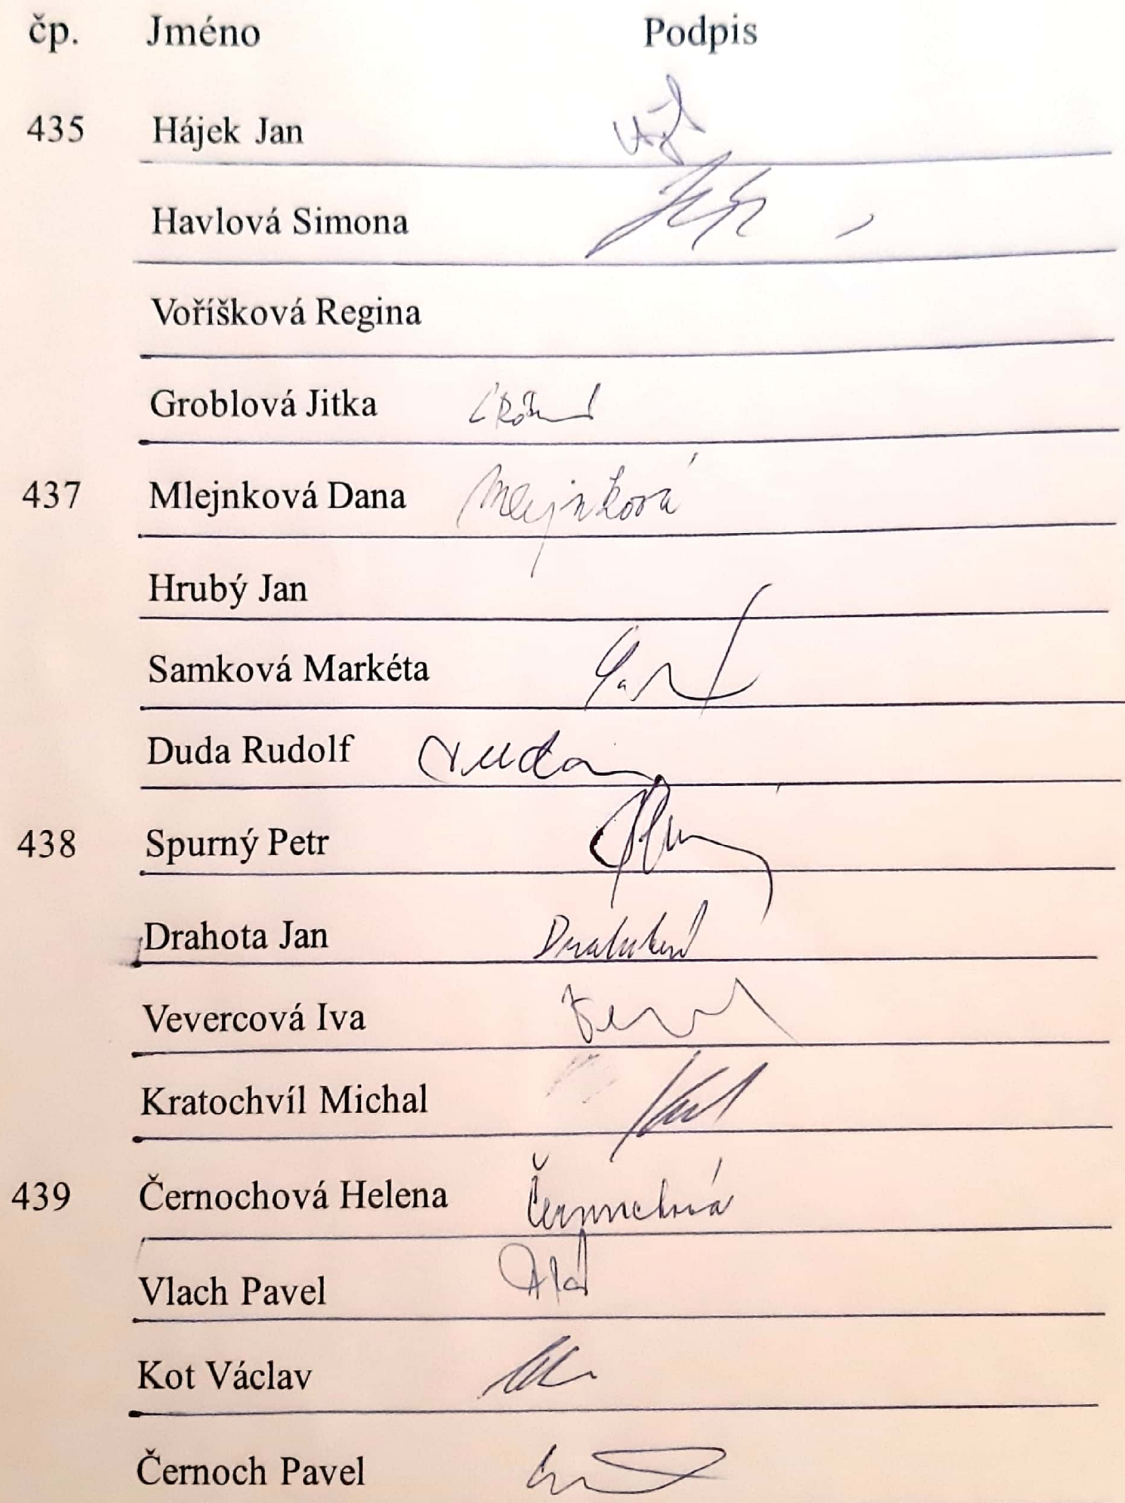 čp. Jméno Podpis
435 Hájek Jan
Havlová Simona
Voříšková Regina
Groblová Jitka
437 Mlejnková Dana Mlejnková
Hrubý Jan
Samková Markéta
Duda Rudolf Duda
438 Spurný Petr
Drahota Jan
Vevercová Iva
Kratochvíl Michal
439 Černochová Helena Černochová
Vlach Pavel
Kot Václav
Černoch Pavel